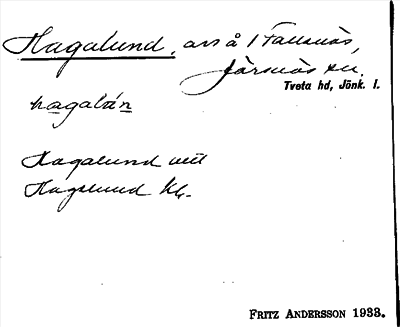 Hagalund, avs å 1 Fallsnäs,
Järsnäs sn.
Tveta hd, Jönk. l.
hagalún
Hagalund
Hagelund Kb.
FRITZ ANDERSSON 1933.